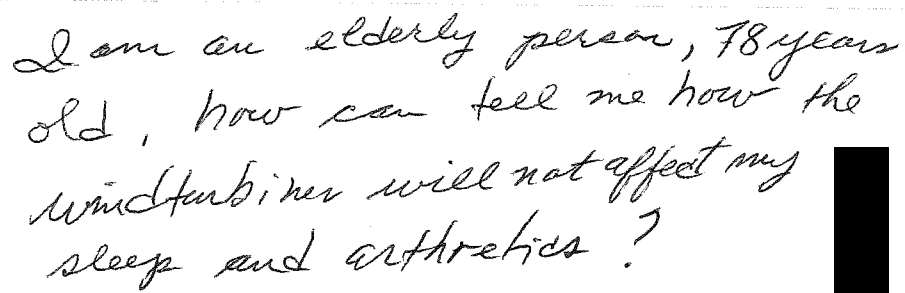 I am an elderly person, 78 years
old, how can tell me how the
windturbines will not affect my
sleep and arthretics ?